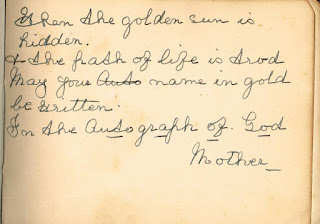 When the golden sun is
hidden.
& the path of life is trod
May your Auto name in gold
be written.
In the Autograph of God
Mother